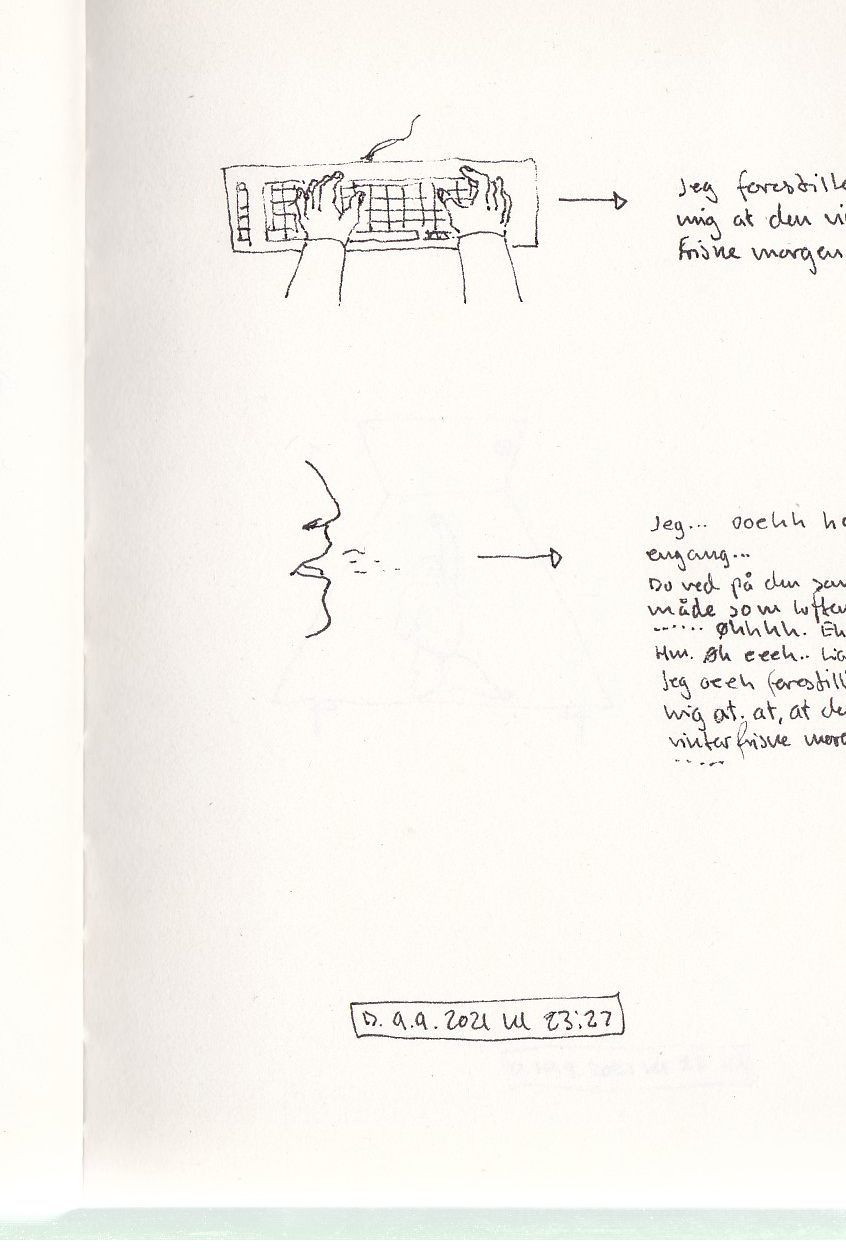 Jeg forestille
mig at den vi
friske morgen
Jeg... ooehh he
engang...
Du ved på den sam
måde som luften
...... Øhhhh. Eh
Hm. Øh eeeh..
Jeg oeeh forestill
mig at. at, at de
vinterfriske morg
.....
D. 9.9. 2021 kl 23:27